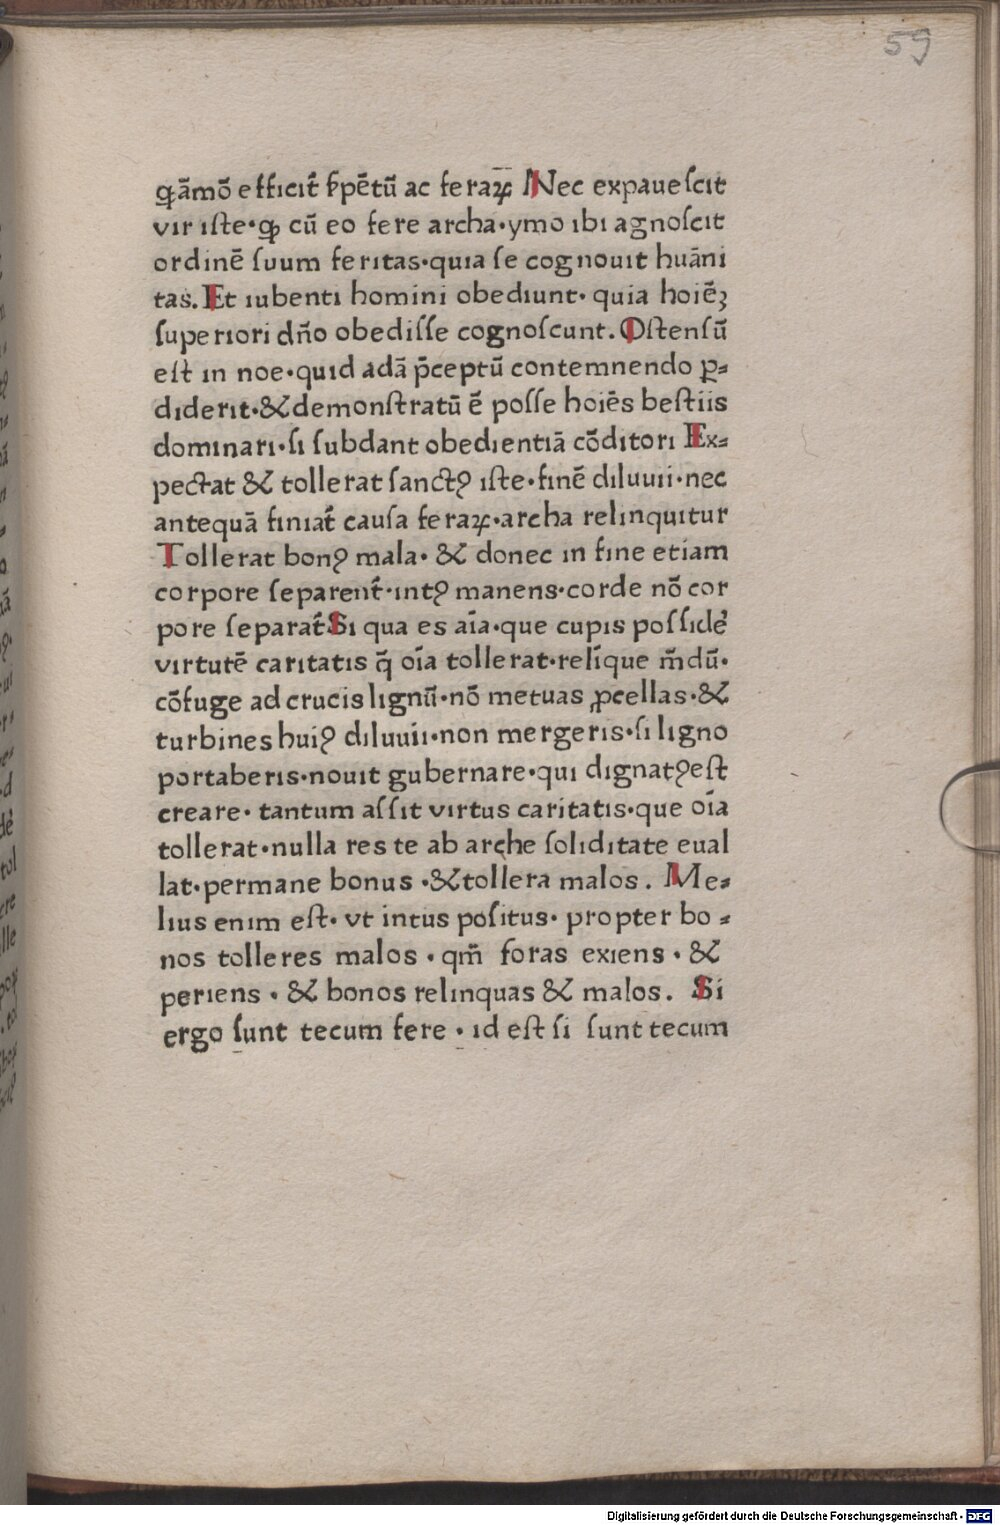 59
ꝙāmō efficit̄ ẜpētū ac feraꝝ Nec expaueſcit
vir iſte·ꝙ cū eo fere archa·ymo ibi agnoſcit
ordinē ſuum feritas·quia ſe cognouit huāni
tas. Et iubenti homini obediunt· quia hoiēꝫ
ſuperiori dn̄o obediſſe cognoſcunt. Oſtenſū
eſt in noe·quid adā p̄ceptū contemnendo ꝑ⸗
diderit·&demonſtratū ē poſſe hoiēs beſtiis
dominari·ſi ſubdant obedientiā cōditori Ex⸗
pectat & tollerat ſanctꝰ iſte·finē diluuii·nec
antequā finiat̄ cauſa feraꝝ·archa relinquitur
Tollerat bonꝰ mala· & donec in fine etiam
corpore ſeparent̄·intꝰ manens·corde nō cor
pore ſeparat̄ Si qua es aīa·que cupis poſſide᷑
virtutē caritatis q̄ oīa tollerat·relīque m̄dū·
cōfuge ad crucis lignū·nō metuas ꝓcellas·&
turbines huiꝰ diluuii·non mergeris·ſi ligno
portaberis·nouit gubernare·qui dignatꝰeſt
creare· tantum aſſit virtus caritatis·que oīa
tollerat·nulla res te ab arche ſoliditate eual
lat·permane bonus ·&tollera malos. Me⸗
lius enim eſt· vt intus poſitus· propter bo⸗
nos tolleres malos · qm̄ foras exiens · &
periens · & bonos relinquas & malos. Si
ergo ſunt tecum fere · id eſt ſi ſunt tecum
Digitalisierung gefördert durch die Deutsche Forschungsgemeinschaft - DFG